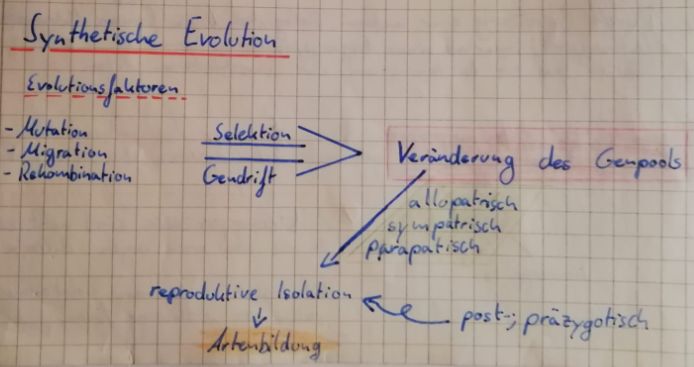 Synthetische Evolution
Evolutionsfaktoren
- Mutation
- Migration
- Rekombination
Selektion
Gendrift
Veränderung des Genpools
allopatrisch
sympatrisch
parapatisch
reproduktive Isolation
post-; präzygotisch
Artenbildung